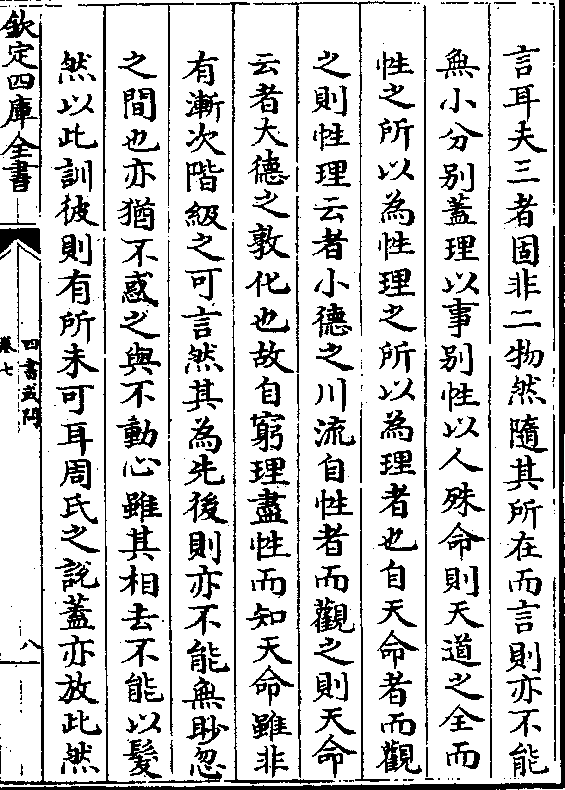 言耳夫三者固非二物然隨其所在而言則亦不能
無小分別蓋理以事別性以人殊命則天道之全而
性之所以為性理之所以為理者也自天命者而觀
之則性理云者小德之川流自性者而觀之則天命
云者大德之敦化也故自窮理盡性而知天命雖非
有漸次階級之可言然其為先後則亦不能無眇忽
之間也亦猶不惑之與不動心雖其相去不能以髮
然以此訓彼則有所未可耳周氏之說蓋亦放此然
欽定四庫全書
四書或問
卷七
八